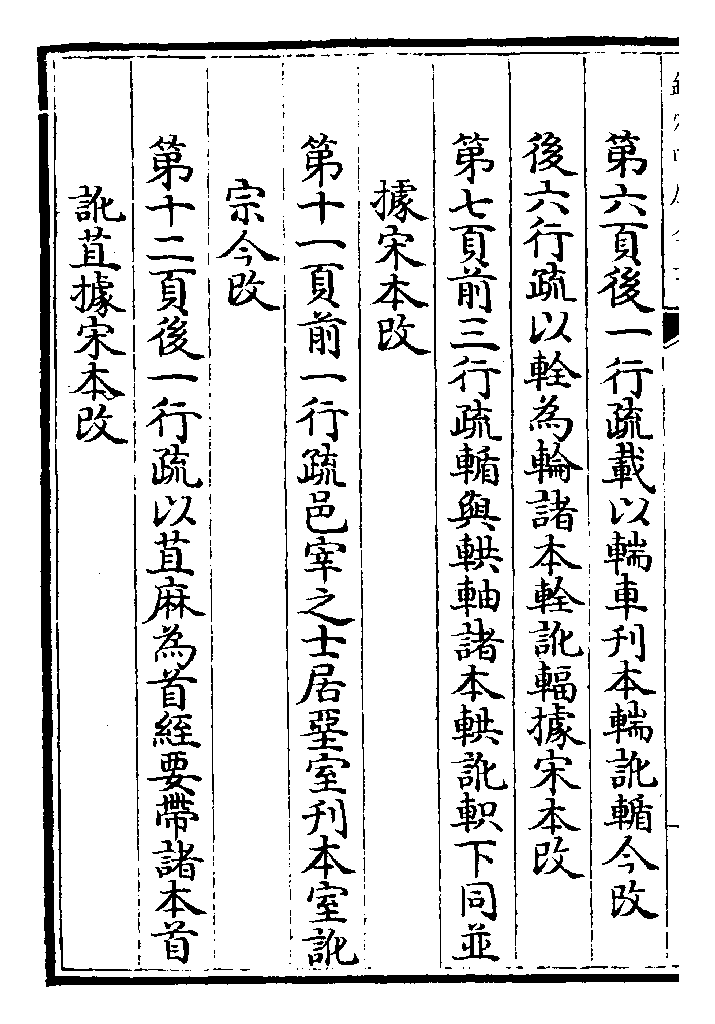 第六頁後一行疏載以輲車刊本輲訛輴今改
後六行疏以輇為輪諸本輇訛輻據宋本改
第七頁前三行疏輴與輁軸諸本輁訛軹下同並
據宋本改
第十一頁前一行疏邑宰之士居堊室刊本室訛
宗今改
第十二頁後一行疏以苴麻為首絰要帶諸本首
訛苴據宋本改